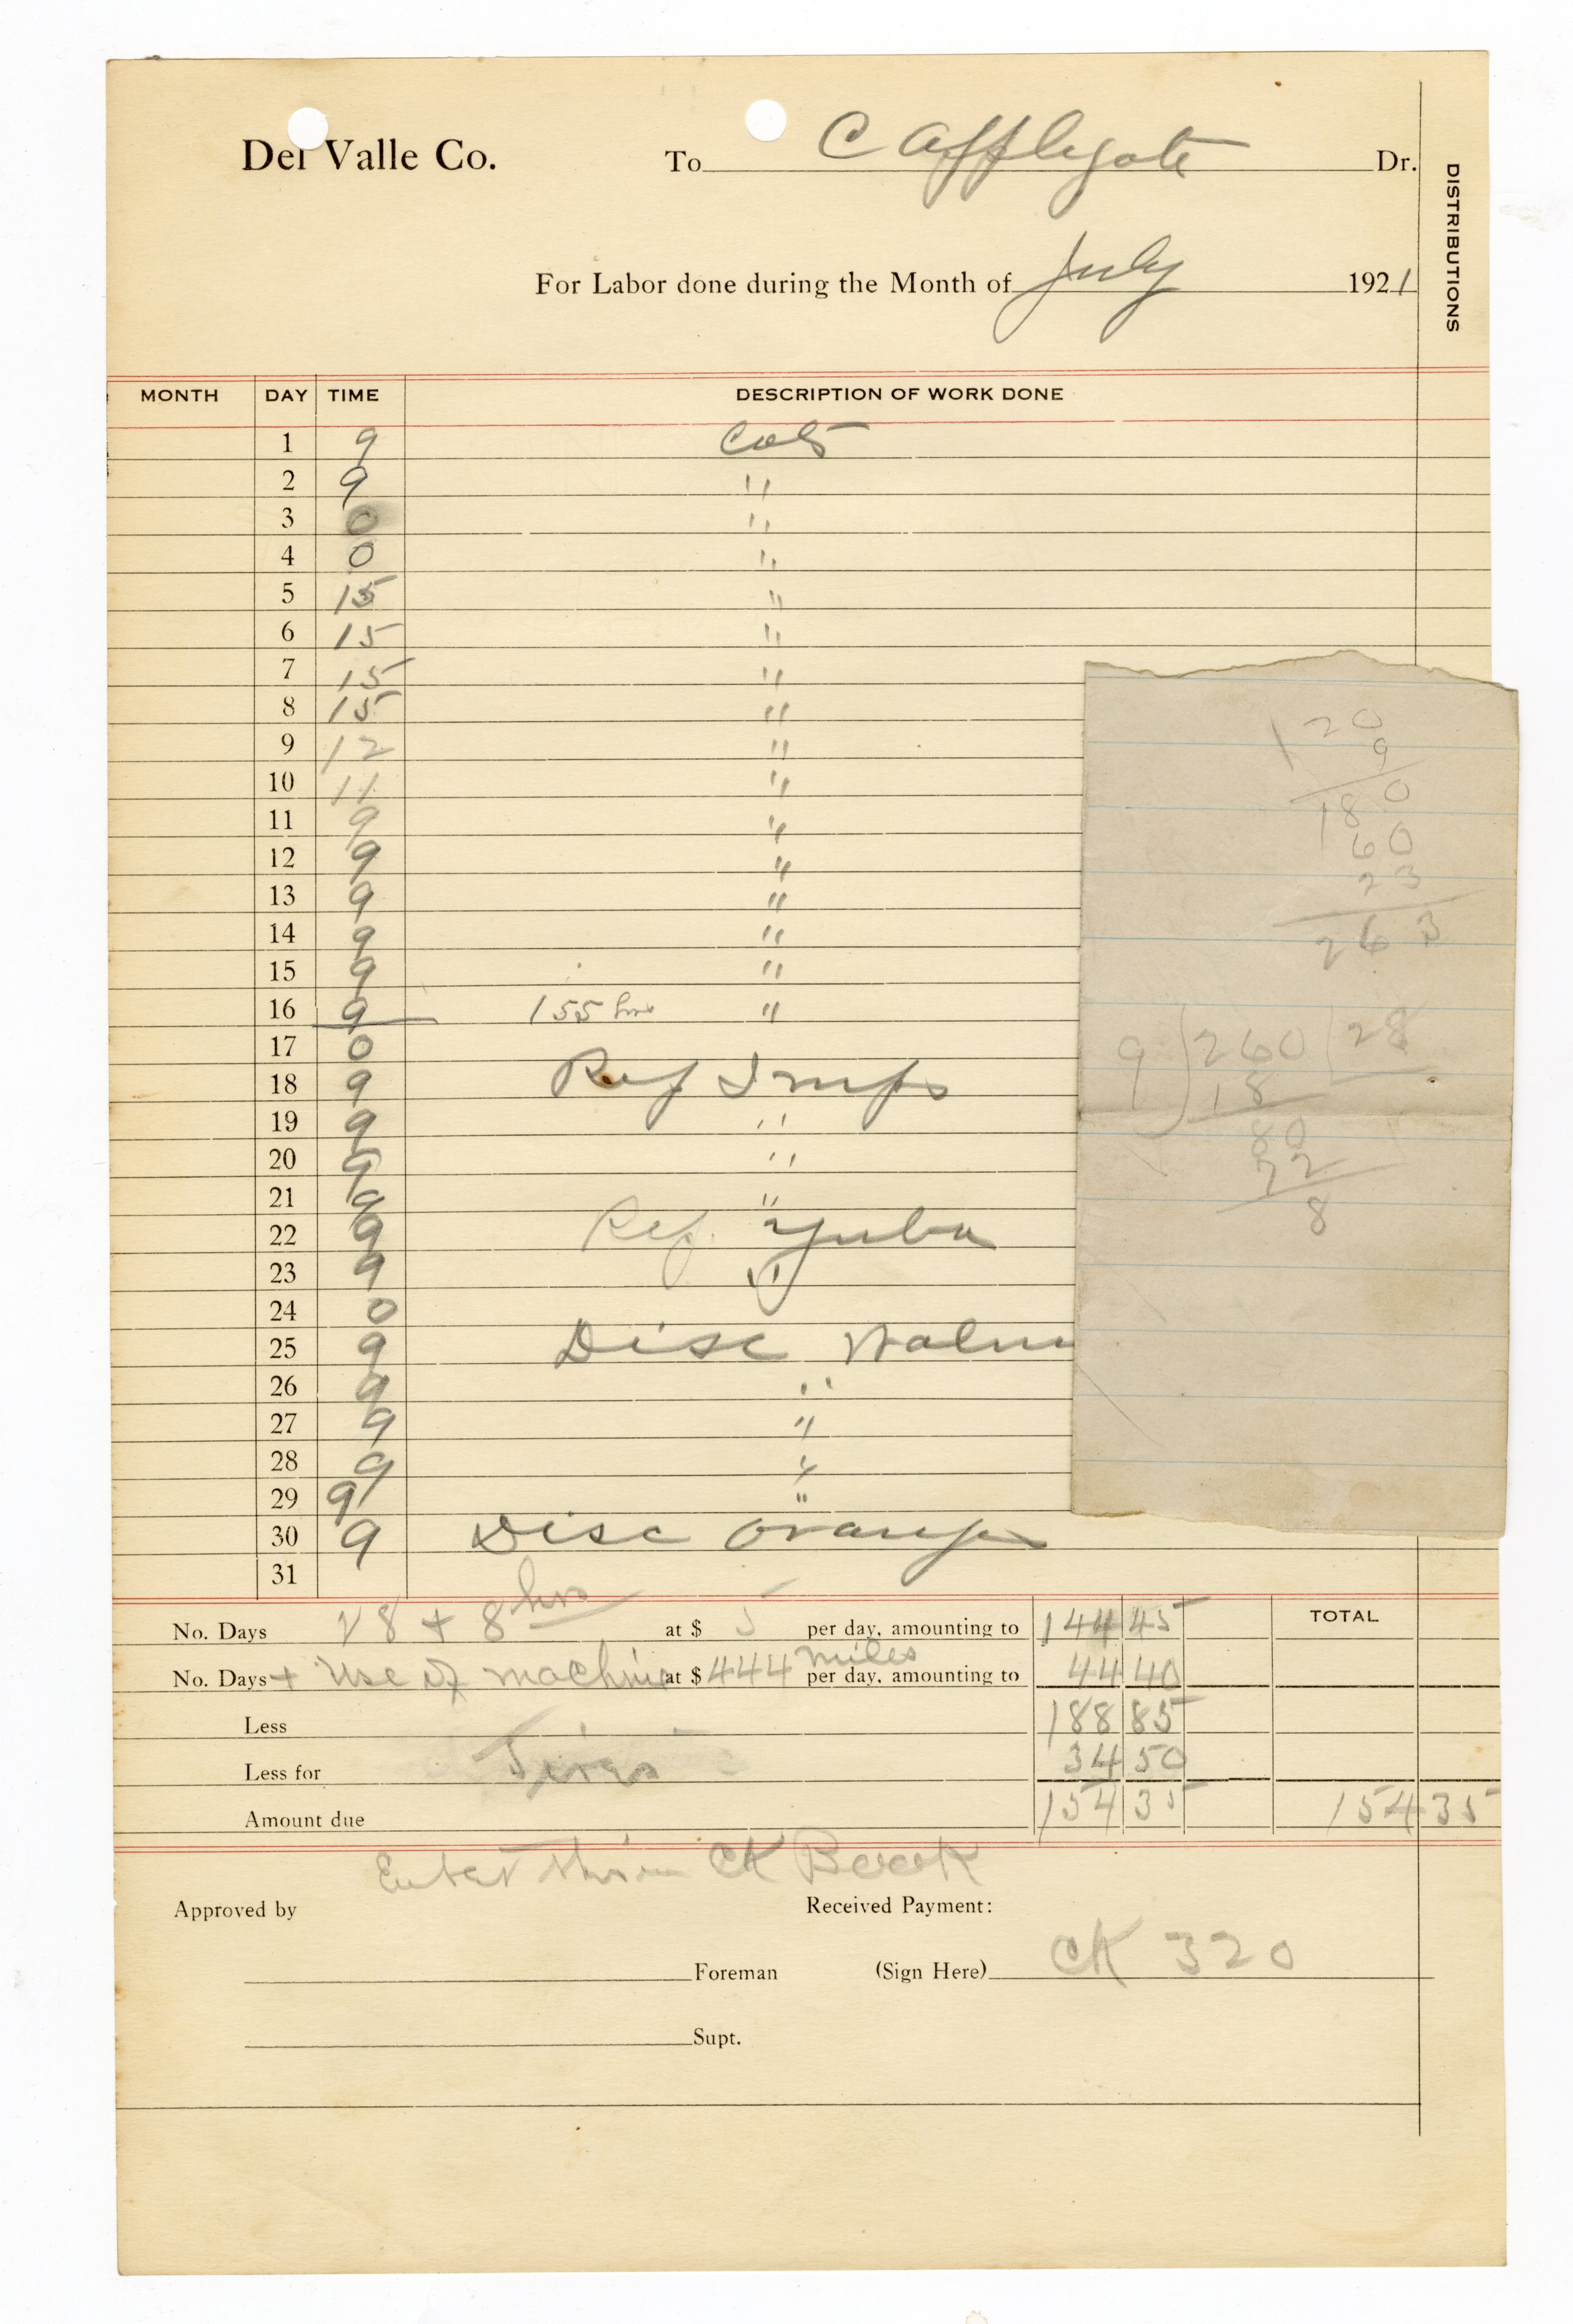 Del Valle Co. To C Applegate Dr.
DISTRIBUTIONS
For Labor done during the Month of July 1921
MONTH DAY TIME DESCRIPTION OF WORK DONE
1 9 Cat
2 9 "
3 0 "
4 0 "
5 15 "
6 15 "
7 15 "
8 15 "
9 12 "
10 11 "
11 9 "
12 9 "
13 9 "
14 9 "
15 9 "
16 9 155 hrs "
17 0
18 9 Rep Imps
19 9 "
20 9 "
21 9 "
22 9 Rep. Yuba
23 9 "
24 0
25 9 Disc Waln
26 9 "
27 9 "
28 9 "
29 9 "
30 9 Disc Oranges
31
120
9
180
60
23
263
9 ) 260 ( 28
18
80
72
8
No. Days 28 + 8 hrs at $ 5 per day, amounting to 144 45 TOTAL
No. Days + Use of machine at $ 444 miles per day, amounting to 44 40
Less 188 85
Less for Tires 34 50
Amount due 154 35 154 35
Enter this in CK Book
Approved by Received Payment:
Foreman (Sign Here) CK 320
Supt.